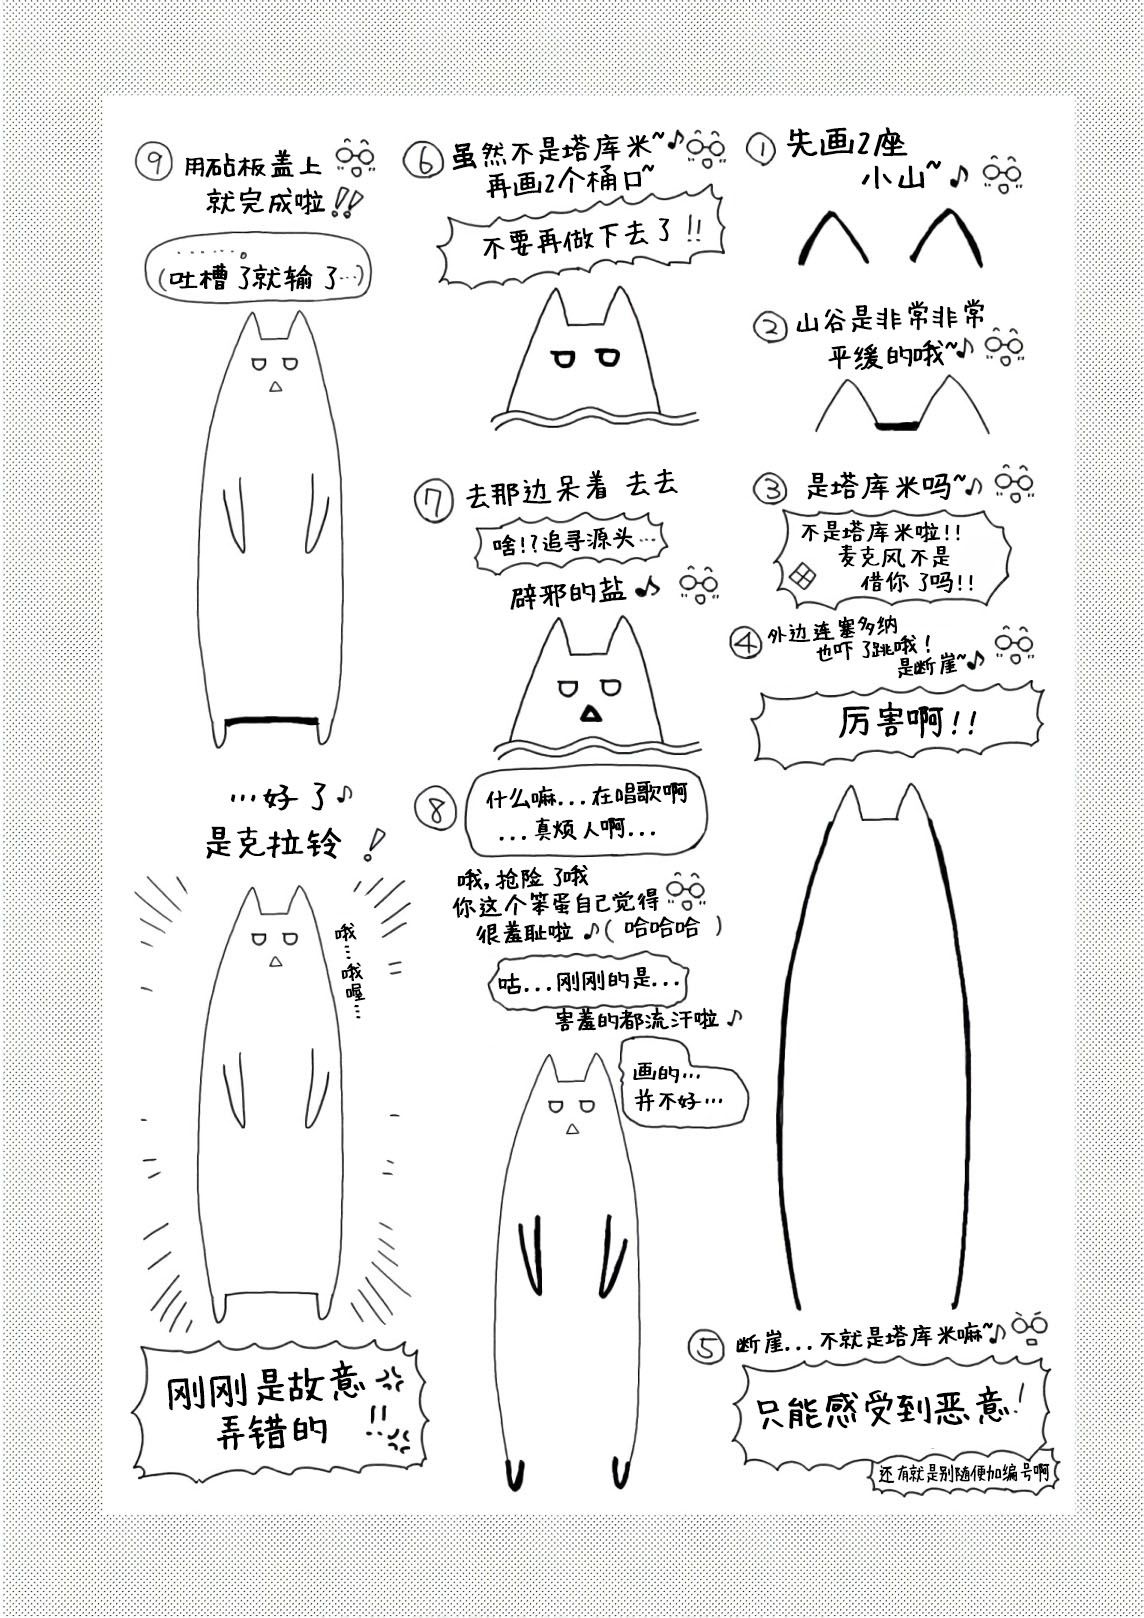 ①先画2座
小山~♪
②山谷是非常非常
平缓的哦~♪
③是塔库米吗~♪
不是塔库米啦!!
麦克风不是
借你了吗!!
④外边连塞多纳
也吓了跳哦!
是断崖~♪
厉害啊!!
⑤断崖...不就是塔库米嘛~♪
只能感受到恶意!
还有就是别随便加编号啊
⑥虽然不是塔库米~♪
再画2个桶口~
不要再做下去了!!
⑦去那边呆着 去去
啥!?追寻源头…
辟邪的盐♪
⑧什么嘛...在唱歌啊
...真烦人啊...
哦,抢险了哦
你这个笨蛋自己觉得
很羞耻啦♪(哈哈哈)
咕...刚刚的是...
害羞的都流汗啦♪
画的…
并不好…
⑨用砧板盖上
就完成啦!!
……。
(吐槽了就输了…)
…好了♪
是克拉铃!
哦…哦喔…
刚刚是故意
弄错的!!